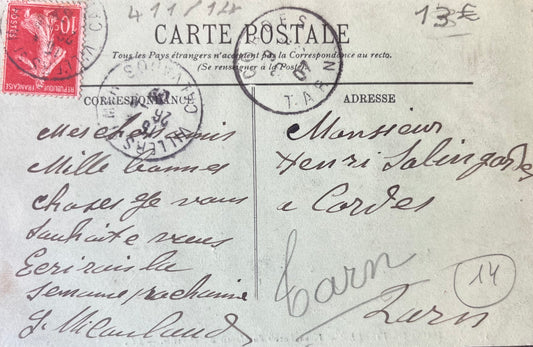 411/124
13€
CARTE POSTALE
Tous les Pays étrangers n'acceptent pas la Correspondance au recto.
(Se renseigner à la Poste)
CORRESPONDANCE
ADRESSE
10c
POSTES
REPUBLIQUE FRANÇAISE
CORDES
TARN
VILLERS
CALVADOS
Mes chers amis
Mille bonnes
choses Je vous
Souhaite vous
Ecrirais la
semaine prochaine
Monsieur
Henri
a Cordes
Tarn
Tarn
14